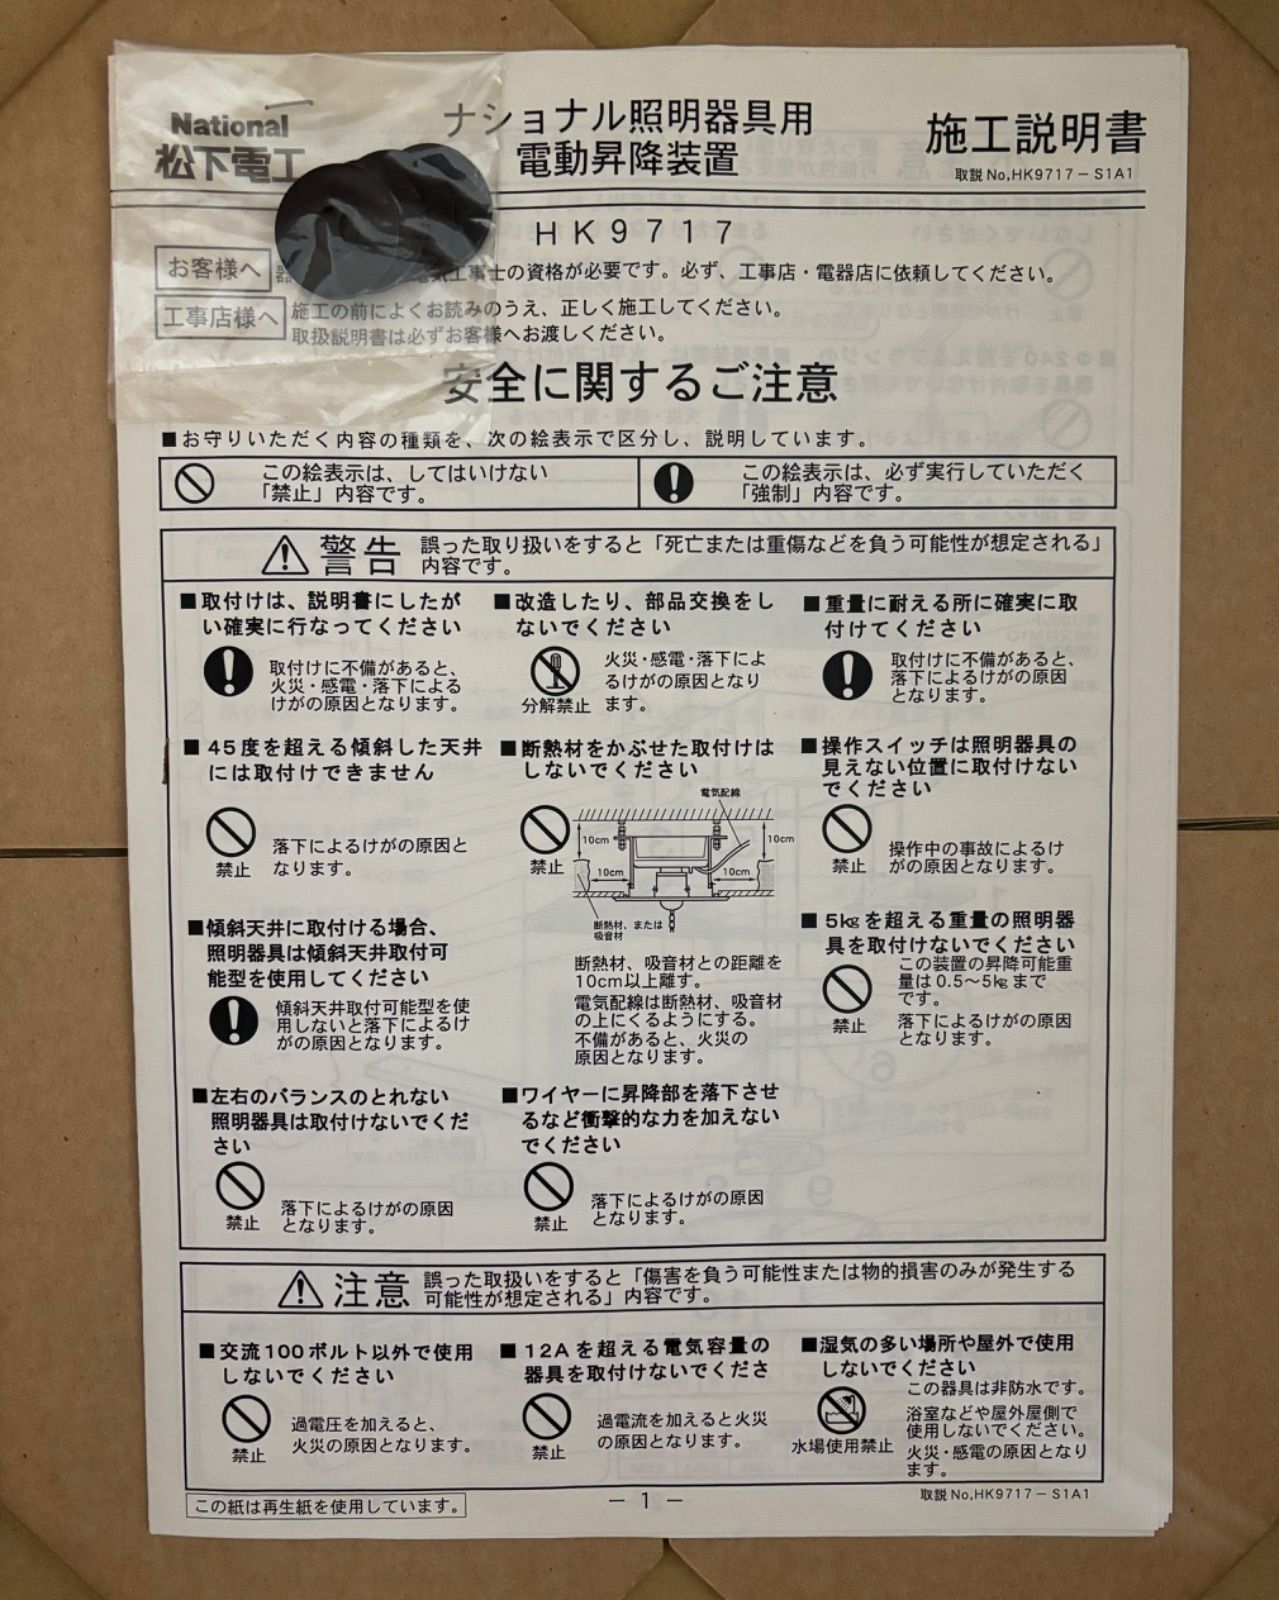 National
松下電工
ナショナル照明器具用
電動昇降装置
施工説明書
取説 No,HK9717－S1A1
HK9717
お客様へ
工事士の資格が必要です。必ず、工事店・電器店に依頼してください。
工事店様へ
施工の前によくお読みのうえ、正しく施工してください。
取扱説明書は必ずお客様へお渡しください。
安全に関するご注意
■お守りいただく内容の種類を、次の絵表示で区分し、説明しています。
この絵表示は、してはいけない
「禁止」内容です。
この絵表示は、必ず実行していただく
「強制」内容です。
警告
誤った取り扱いをすると「死亡または重傷などを負う可能性が想定される」
内容です。
■取付けは、説明書にしたが
い確実に行なってください
取付けに不備があると、
火災・感電・落下による
けがの原因となります。
■改造したり、部品交換をし
ないでください
分解禁止
火災・感電・落下によ
るけがの原因となり
ます。
■重量に耐える所に確実に取
付けてください
取付けに不備があると、
落下によるけがの原因
となります。
■45度を超える傾斜した天井
には取付けできません
禁止
落下によるけがの原因と
なります。
■断熱材をかぶせた取付けは
しないでください
禁止
電気配線
10cm
10cm
10cm
10cm
断熱材、または
吸音材
断熱材、吸音材との距離を
10cm以上離す。
電気配線は断熱材、吸音材
の上にくるようにする。
不備があると、火災の
原因となります。
■操作スイッチは照明器具の
見えない位置に取付けない
でください
禁止
操作中の事故によるけ
がの原因となります。
■傾斜天井に取付ける場合、
照明器具は傾斜天井取付可
能型を使用してください
傾斜天井取付可能型を使
用しないと落下によるけ
がの原因となります。
■5㎏を超える重量の照明器
具を取付けないでください
禁止
この装置の昇降可能重
量は0.5～5㎏まで
です。
落下によるけがの原因
となります。
■左右のバランスのとれない
照明器具は取付けないでくだ
さい
禁止
落下によるけがの原因
となります。
■ワイヤーに昇降部を落下させ
るなど衝撃的な力を加えない
でください
禁止
落下によるけがの原因
となります。
注意
誤った取扱いをすると「傷害を負う可能性または物的損害のみが発生する
可能性が想定される」内容です。
■交流100ボルト以外で使用
しないでください
禁止
過電圧を加えると、
火災の原因となります。
■12Aを超える電気容量の
器具を取付けないでくださ
禁止
過電流を加えると火災
の原因となります。
■湿気の多い場所や屋外で使用
しないでください
水場使用禁止
この器具は非防水です。
浴室などや屋外屋側で
使用しないでください。
火災・感電の原因となり
ます。
この紙は再生紙を使用しています。
－1－
取説 No,HK9717－S1A1